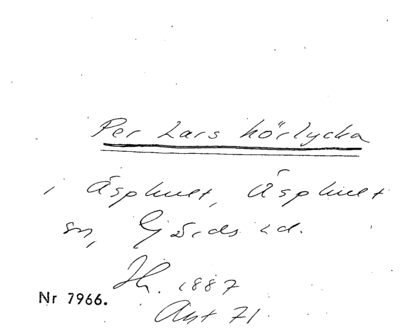 Per Lars hörlycka
i Äsphult, Äsphult
sn, Gärds hd.
Jh. 1887
Nr 7966.
Ant 71.